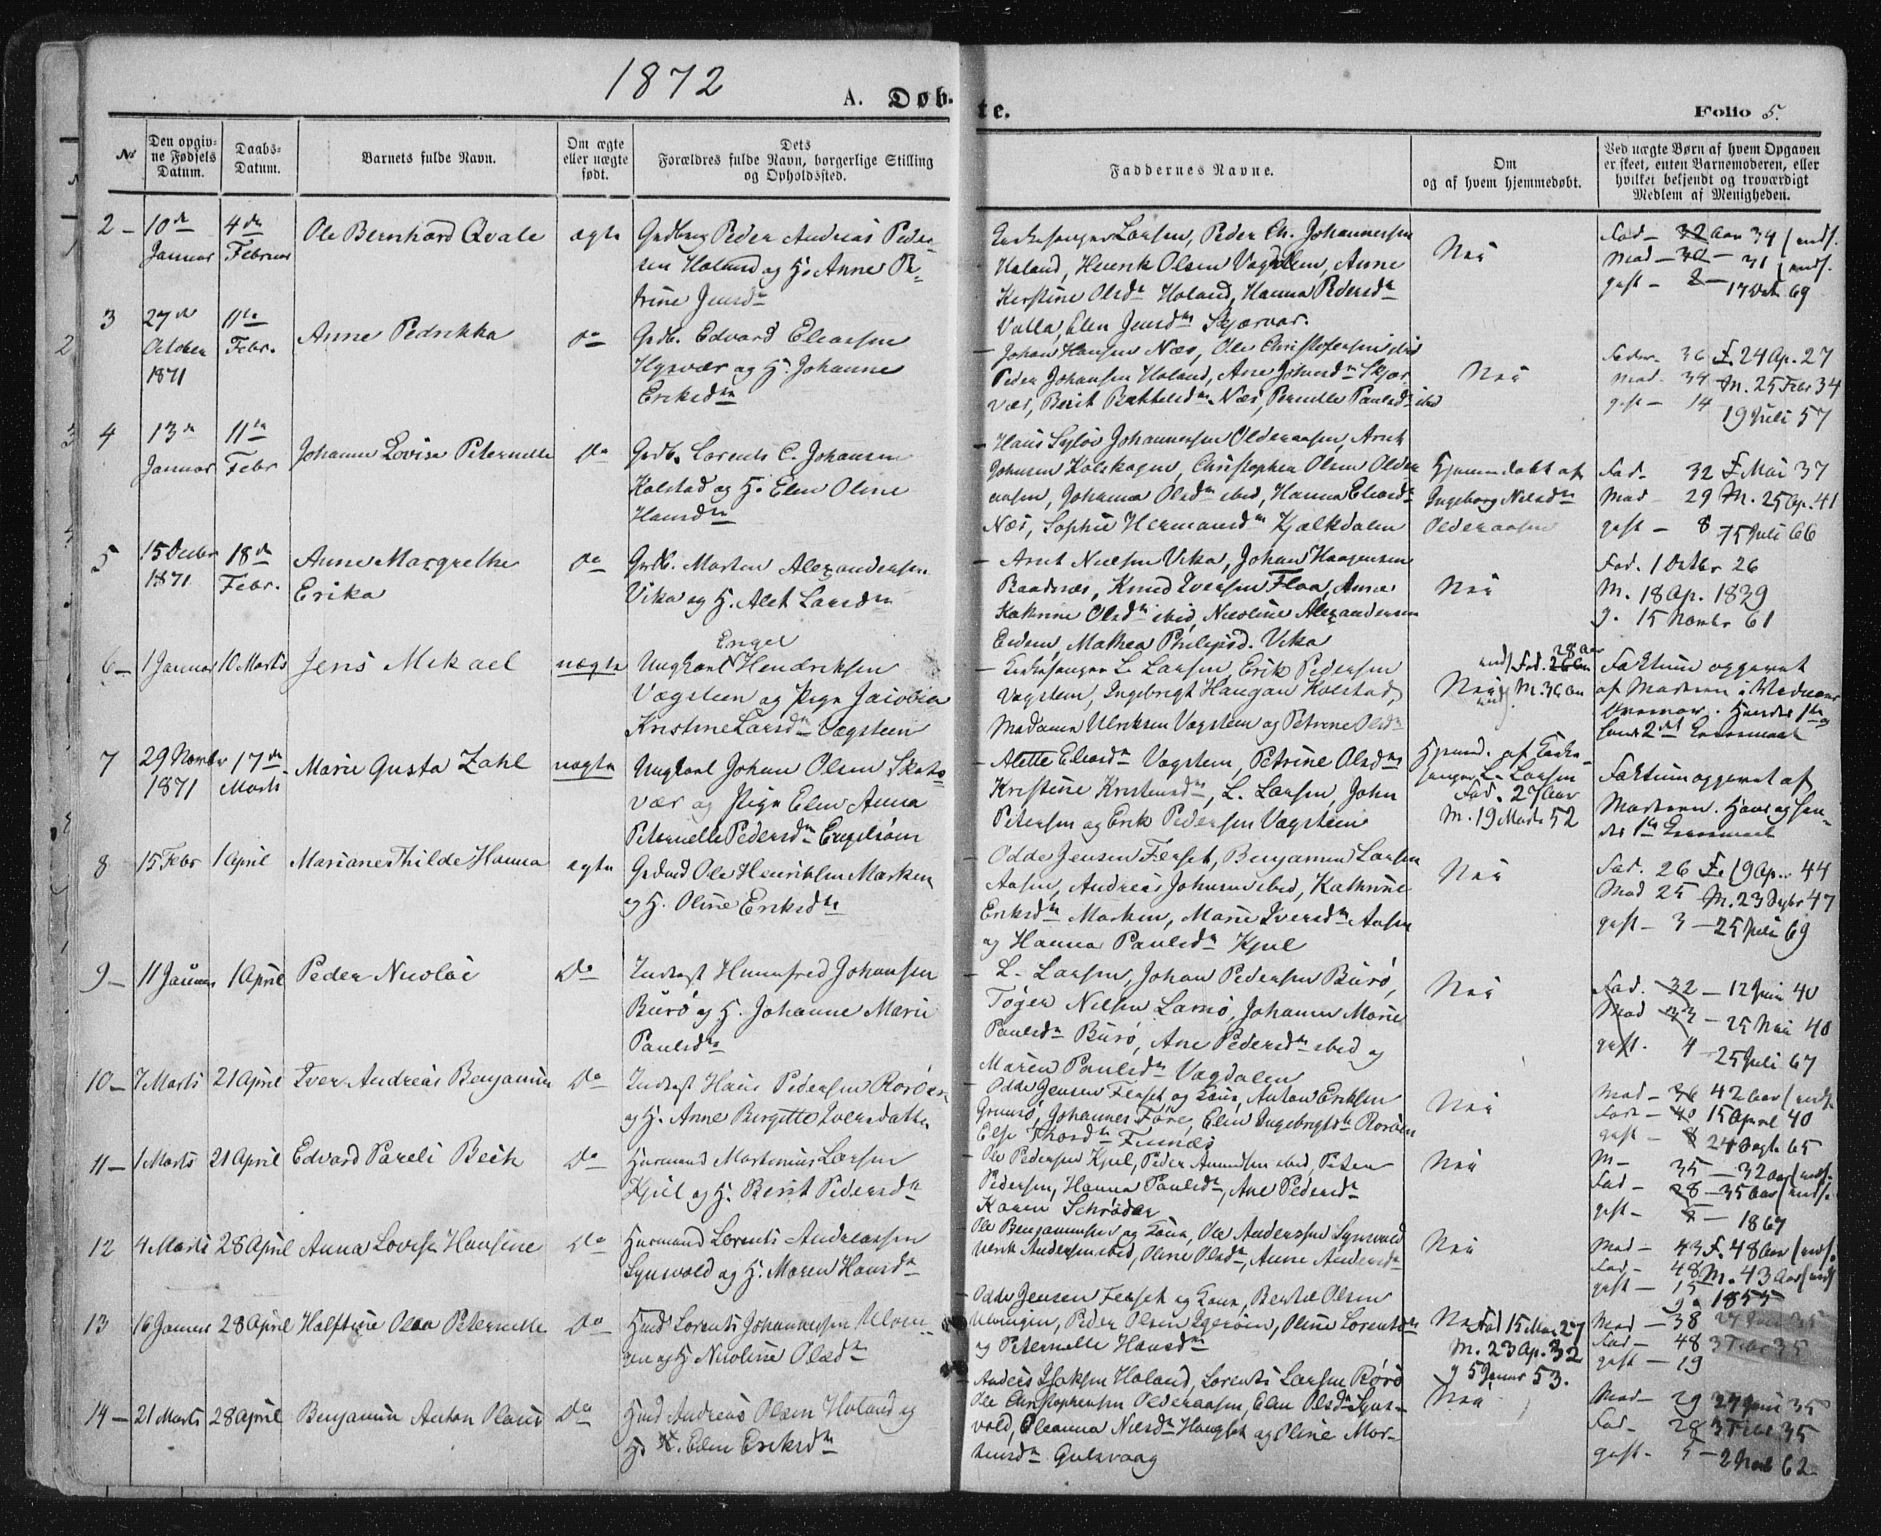 1872
A. Døb-
te.
Folio 5.
No
Den opgiv-
ne Fødsels
Datum.
Daabs-
Datum.
Barnets fulde Navn.
Om ægte
eller uægte
født.
Dets
Forældres fulde Navn, borgerlige Stilling
og Opholdssted.
Faddernes Navne.
Om
og af hvem hjemmedøbt.
Ved uægte Børn af hvem Opgaven
er skeet, enten Barnemoderen, eller
hvilket bekjendt og troværdigt
Medlem af Menigheden.
2 –
10de
Januar
4de
Februar
Ole Bernhard Qvale
ægte
Peder Andreas Peder-
sen Holand og H. Anne Pe-
trine Jensdn
Kirkesanger Larsen, Peder Ch. Johannesen
Holand, Henrik Olsen Vagdalen, Anne
Kerstine Olsdn Holand, Hanna Pedersdn
Valla, Elen Jensdn Skjærvær.
Nei
Fad – 32 Aar 34
Mod – 30 – 31
gift – 2 – 17 Oct 69
3
27de
October
1871
11te
Febr.
Anne Pedrikka
Do
Grdb. Edvard Eliassen
Hysvær og H. Johanne
Eriksdn
– Johan Hansen Næs, Ole Christophersen ibid
Peder Johansen Holand, Ane Johnsdn Skjær-
vær, Berit Bertheldn Næs, Pernelle Paulsdn ibid
Nei
Fader 36 F. 24 Ap. 27
Mod. 34 M. 25 Febr 34
gift – 14 19 Juli 57
4
13de
Januar
11te
Febr
Johanna Lovise Peternelle
Do
Grdb. Lorents C. Johansen
Kolstad og H. Elen Oline
Hansdn
– Hans Johannesen Olderaasen, Arnt
Johnsen Kolskogen, Christopher Olsen Older-
aasen, Johanna Olsdn ibid, Hanna Eliasdn
Næs, Sophie Hermansdn Kjælkdalen
Hjemmedøbt af
Ingeborg Nilsdn
Olderaasen
Fad – 32 F Mai 37
Mod – 29 M. 25 Ap. 41
gift – 8 15 Juli 66
5
15 Decbr
1871
18de
Febr.
Anne Margrethe
Erika
Do
Grdb. Morten Alexandersen
Vika og H. Alet Larsdn
– Arnt Nielsen Vika, Johan Haagensen
Baadnæs, Knud Iversen Floa, Anne
Kathrine Olsdn ibid, Nicoline Alexandersen
Eidem, Mathea Philipsd. Vika
Nei
Fad. 1 Octbr 26
M. 18 Ap. 1829
g. 15 Novbr 61
6 –
1 Januar
10 Marts
Jens Mikael
uægte
Engel
Ungkarl Hendriksen
Vægsteen og Pige Jacobia
Kristine Larsdn Vægsteen
– Kirkesanger L. Larsen, Erik Pedersen
Vagstein, Ingebrigt Haugan Kolstad,
Madame Ulriksen Vagstein og Petrine Olsdn
28 Aar
Fad. 26 Aar
Nei M. 30 Aar
Faktum opgivet
af Moderen
7
29 Novbr
1871
17de
Marts
Marie Gusta Zahl
uægte
Ungkarl Johan Olsen Skots-
vær og Pige Elen Anna
Peternelle Pedersdn Engelsøen
– Alette Eliasdn Vagstein, Petrine Olsdn
Kristine Kristensdn, L. Larsen, John
Petersen og Erik Pedersen Vagstein
Hjemmed. af Kirke-
sanger L. Larsen
Fad. 27 Aar
M. 19 Marts 52
Faktum opgivet af
Moderen. Hans og hen-
des 1te Leiermaal
8
15 Febr
1 April
Mariane Thilde Hanna
ægte
Grdmd Ole Henriksen Marken
og H. Oline Eriksdn
– Odde Jensen Ferset, Benjamin Larsen
Aasen, Andreas Johnsen ibid, Kathrine
Eriksdn Marken, Marie Iversdn Aasen
og Hanna Paulsdn Kjul
Nei
Fad. 26 F. 19 Apr. 44
Mod 25 M. 23 Sptbr 47
gift – 3 – 25 Juli 69
9 –
11 Januar
1 April
Peder Nicolai
Do
Inderst Hemmfred Johansen
Burø og H. Johanne Marie
Paulsdn
– L. Larsen, Johan Pedersen Burø,
Tøger Nilsen Lamø, Johanna Marie
Paulsdn Burø, Ane Pedersdn ibid og
Maren Paulsdn Vægdalen
Nei
Fad. 32 – 12 Juni 40
Mod 33 – 25 Mai 40
gift. 4 25 Juli 67
10 –
7 Marts
21 April
Iver Andreas Benjamin
Do
Inderst Hans Pedersen Rorøen
og H. Anne Birgitte Iversdatter
– Odde Jensen Ferset og Kone, Anton Eriksen
Grunsø, Johannes Føre, Elen Ingebrigtsdn Rorøen
Else Thorsdn Finnes
Nei
Mod – 36 42 Aar
Fad – 40 15 April 40
gift – 8 24 Sept 65
11 –
1 Marts
21 April
Edvard Pareli Beck
Do
Huusmand Martinius Larsen
Kjul og H. Berit Pedersdn
– Ole Pedersen Kjul, Peder Amundsen ibid, Peter
Pedersen, Hanna Paulsdn, Ane Pedersdn
Karen Schrøder
Nei
M – 35 – 32 Aar
Fad – 28 – 35 Aar
gift – 5 – 1867
12
4 Marts
28 April
Anna Lovise Hansine
Do
Huusmand Lorents Andreassen
Synsvold og H. Maren Hansdn
Ole Benjaminsen og Kone, Ole Anderssen Synsvold
Ulrik Andersen ibid, Oline Olsdn, Anne Andersdn
Nei
Mod – 43 F. 48 Aar
Fad – 48 M. 43 Aar
gift – 15 g. 1855
13
16 Januar
28 April
Halftine Olea Peternelle
Do
Hmd Lorents Johannessen Ulven-
gen og H Nicoline Olsdn
Odde Jensen Ferset og Kone, Bertel Olsen
Ulvingen, Peder Olsen Igerøen, Oline Lorentsdn
og Peternelle Hansdn
Fad 15 Mai 27
M. 23 Ap. 32
g 5 Januar 53.
Mod – 38
Fad – 48 3 Febr 35
gift – 19
14 –
21 Marts
28 April
Benjamin Anton Olaus
Do
Hmd Andreas Olsen Holand og
H. Elen Eriksdn
– Anders Isaksen Holand, Lorents Larsen Rørø
Ole Christophersen Olderaasen, Elen Olsdn Syns-
vold, Eleanna Nilsdn Haugset og Oline Mor-
tensdn Gulsvaag
Nei
Mod – 29 27 Juni 35
Fad – 28 3 Febr 35
gift – 5 – 2 Nov 62